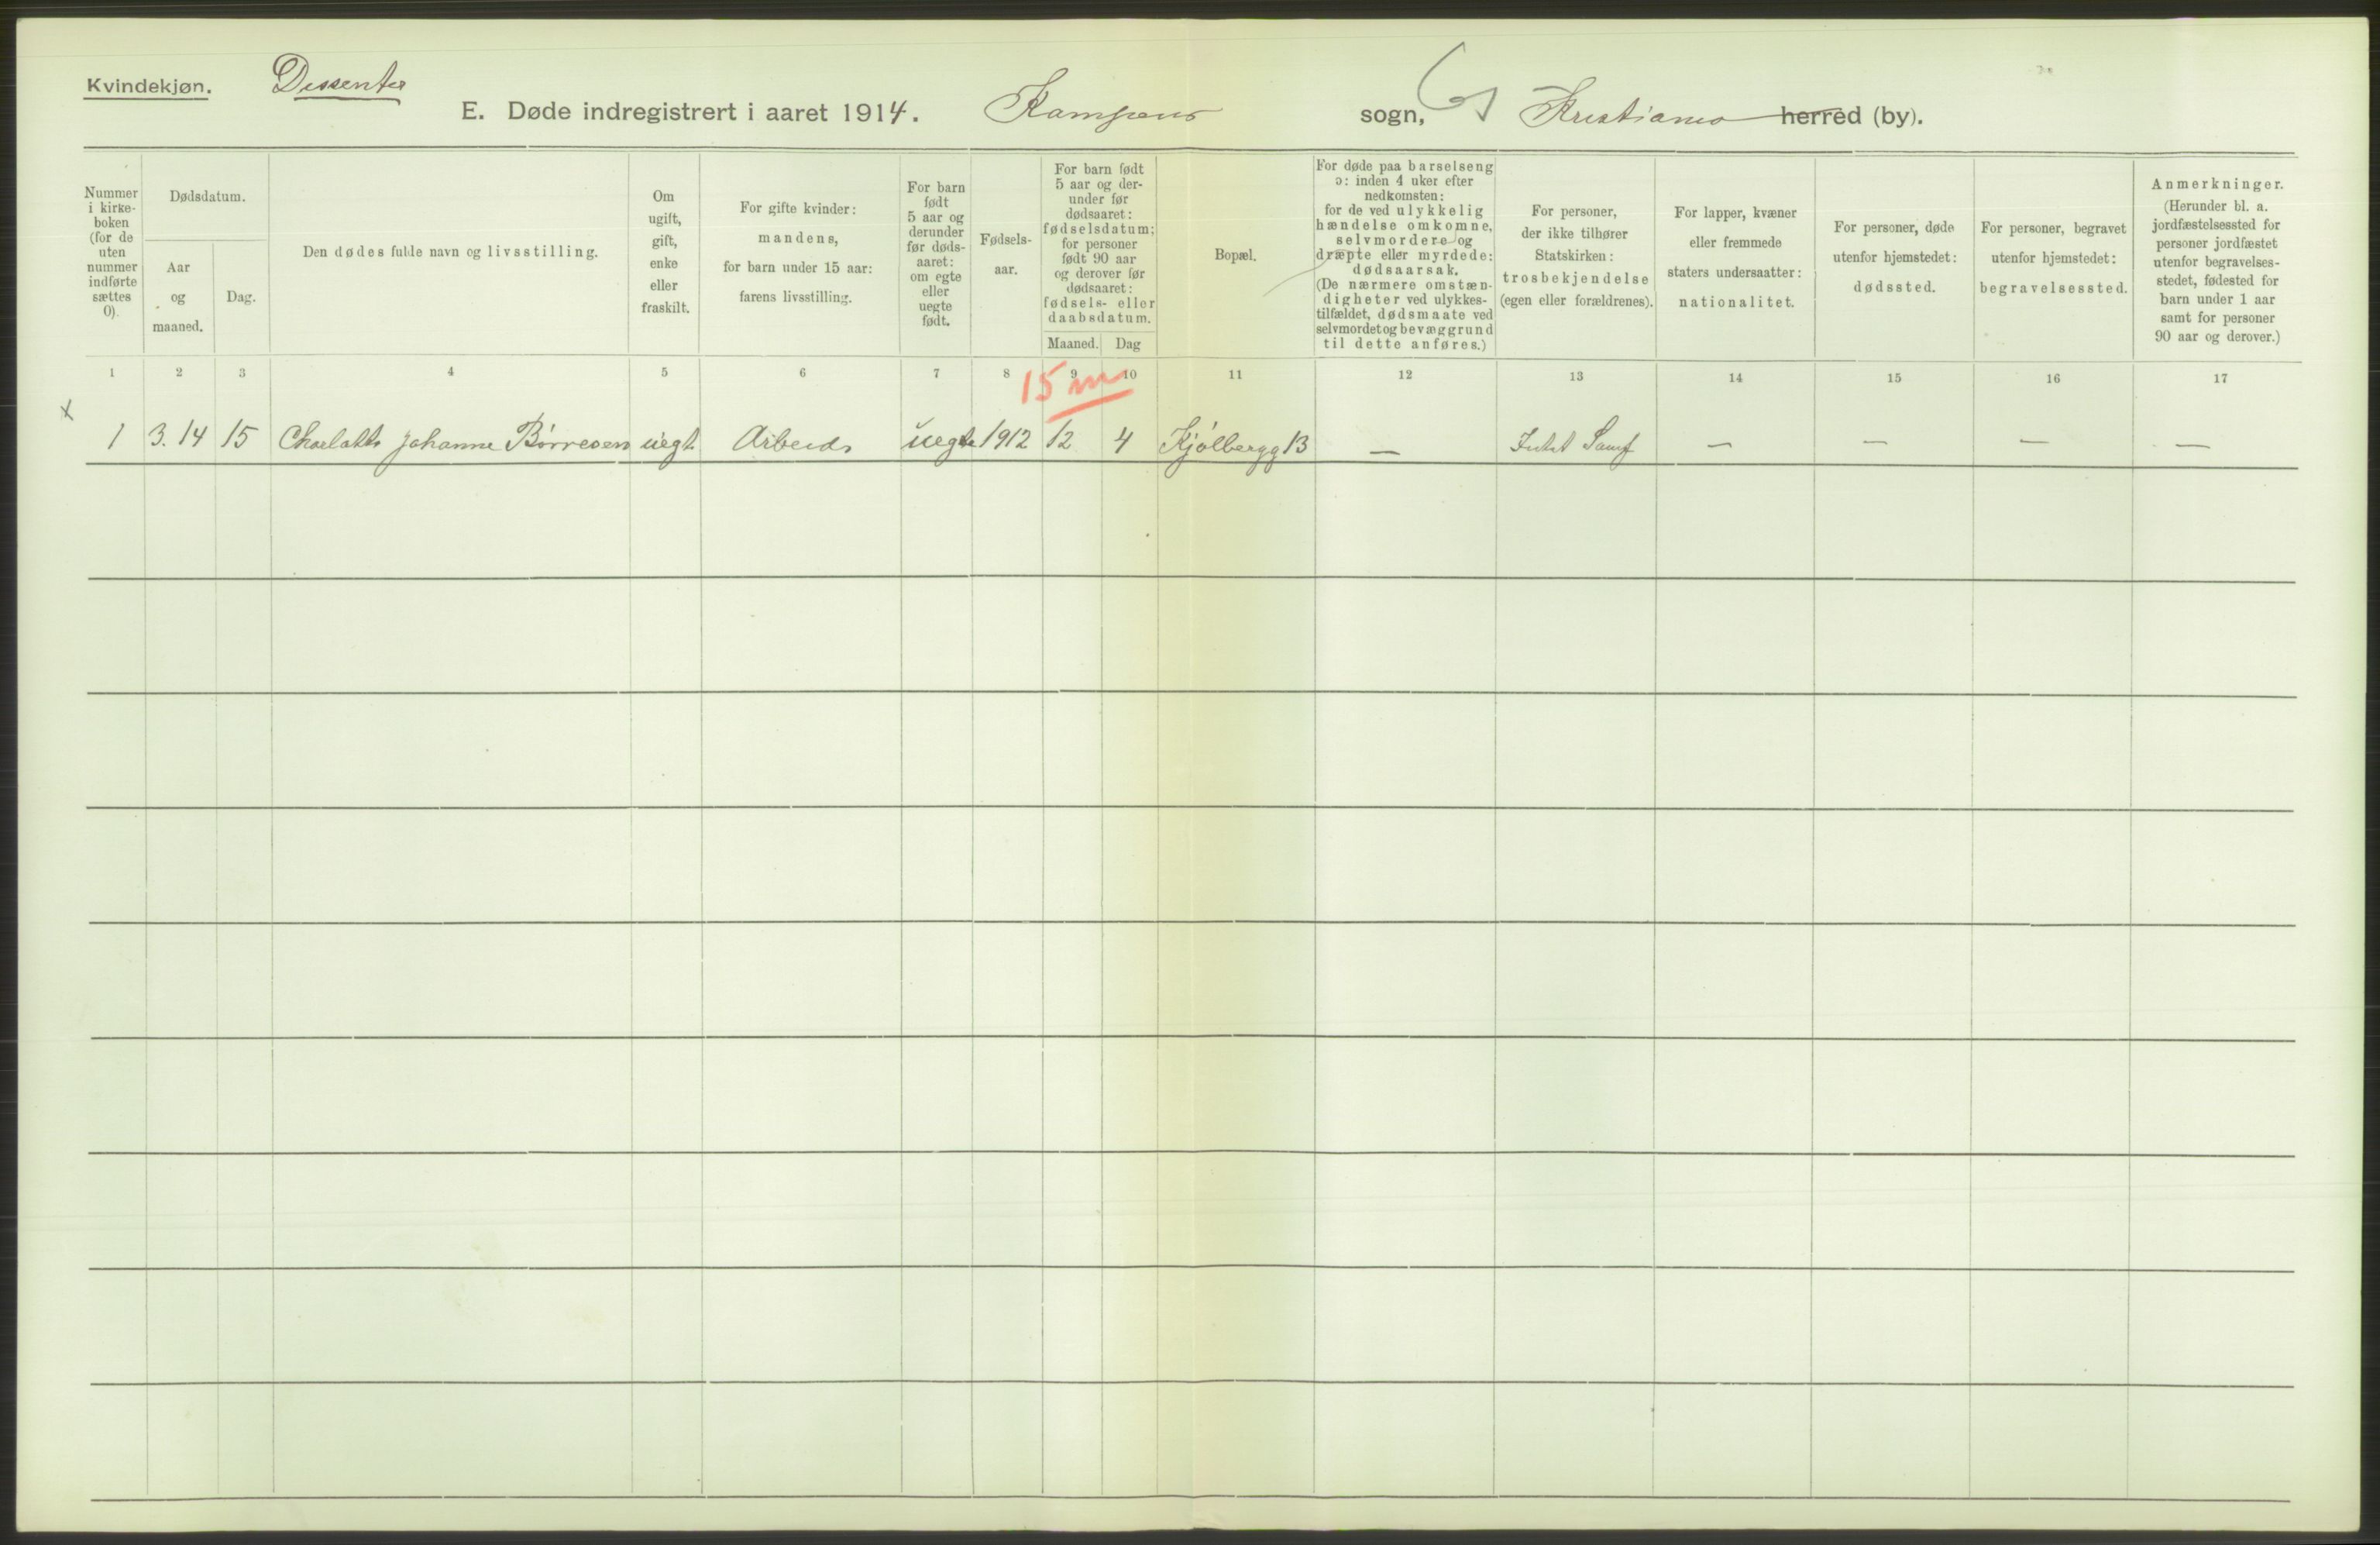 Kvindekjøn. Dissenter
E. Døde indregistrert i aaret 1914. Kampens sogn, Kristiania herred (by).
Nummer
i kirke-
boken
(for de
uten
nummer
indførte
sættes
0).
Dødsdatum.
Aar
og
maaned.
Dag.
Den dødes fulde navn og livsstilling.
Om
ugift,
gift,
enke
eller
fraskilt.
For gifte kvinder:
mandens,
for barn under 15 aar:
farens livsstilling.
For barn
født
5 aar og
derunder
før døds-
aaret:
om egte
eller
uegte
født.
Fødsels-
aar.
For barn født
5 aar og der-
under før
dødsaaret:
fødselsdatum;
for personer
født 90 aar
og derover før
dødsaaret:
fødsels- eller
daabsdatum.
Maaned. Dag
Bopæl.
For døde paa barselseng
ɔ: inden 4 uker efter
nedkomsten:
for de ved ulykkelig
hændelse omkomne,
selvmordere og
dræpte eller myrdede:
dødsaarsak.
(De nærmere omstæn-
digheter ved ulykkes-
tilfældet, dødsmaate ved
selvmordet og bevæggrund
til dette anføres.)
For personer,
der ikke tilhører
Statskirken:
trosbekjendelse
(egen eller forældrenes).
For lapper, kvæner
eller fremmede
staters undersaatter:
nationalitet.
For personer, døde
utenfor hjemstedet:
dødssted.
For personer, begravet
utenfor hjemstedet:
begravelsessted.
Anmerkninger.
(Herunder bl. a.
jordfæstelsessted for
personer jordfæstet
utenfor begravelses-
stedet, fødested for
barn under 1 aar
samt for personer
90 aar og derover.)
1 2 3 4 5 6 7 8 9 10 11 12 13 14 15 16 17
15 m
1 3.14 15 Charlotte Johanne Børresen uegt. Arbeids uegte 1912 12 4 Kjølbergg 13 — Intet Samf — — — —